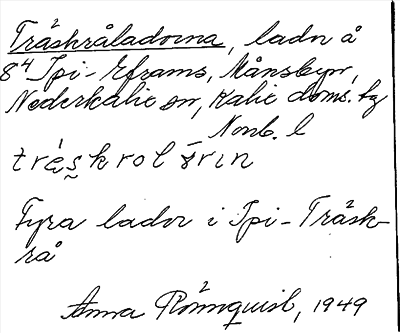 Träskråladorna, lador å
8⁴ Ipi-Eframs, Månsbyn,
Nederkalix sn, Kalix doms. tg
Norrb. l
tráskrolórın
Fyra lador i Ipi-Träsk-
rå
Anna Rönnquist, 1949